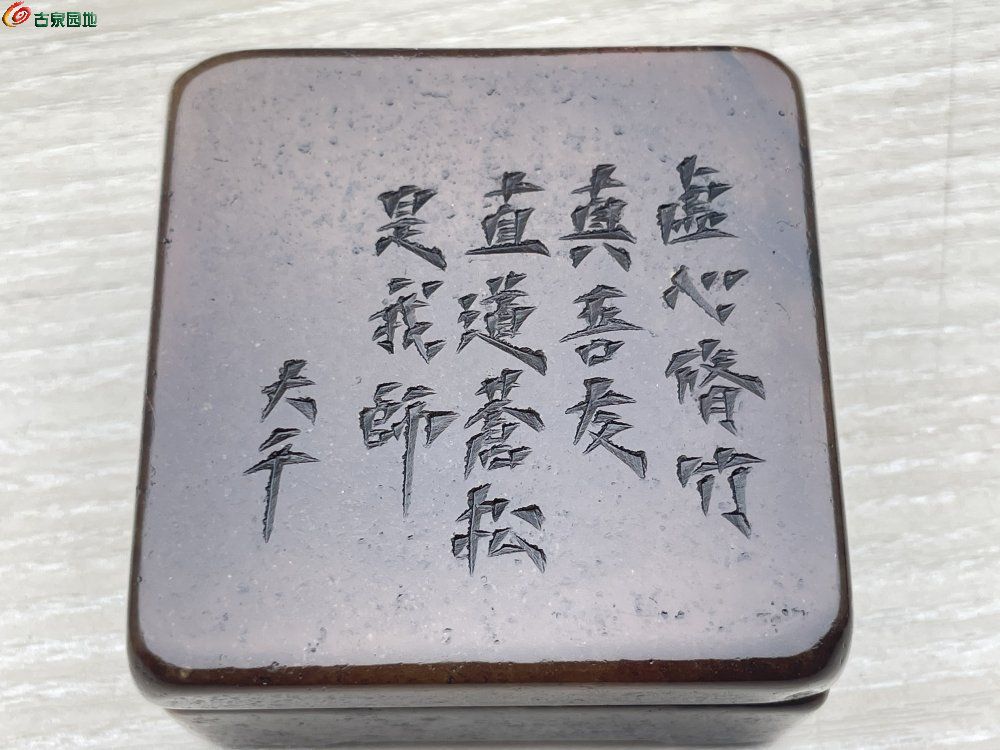 古泉园地
虚心脩竹
真善友
直道蒼松
是我師
大千